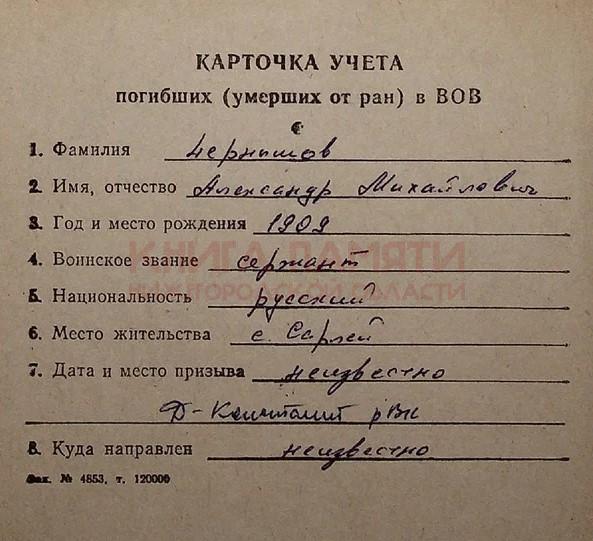 КАРТОЧКА УЧЕТА
погибших (умерших от ран) в ВОВ
1. Фамилия Чернышов
2. Имя, отчество Александр Михайлович
3. Год и место рождения 1909
КНИГА ПАМЯТИ
4. Воинское звание сержант
НИЖЕГОРОДСКОЙ ОБЛАСТИ
5. Национальность русский
6. Место жительства с. Сарлей
7. Дата и место призыва неизвестно
Д-Константин рвк
8. Куда направлен неизвестно
Зак. № 4853, т. 120000